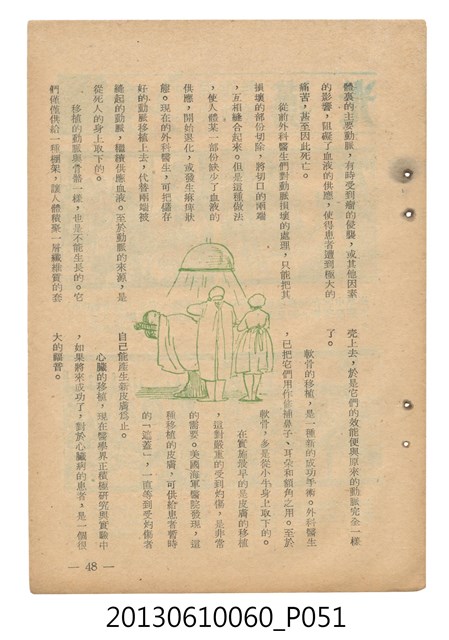 體裏的主要動脈，有時受到瘤的侵襲，或其他因素
的影響，阻礙了血液的供應，使得患者遭到極大的
痛苦，甚至因此死亡。
從前外科醫生們對動脈損壞的處理，只能把其
損壞的部份切除，將切口的兩端
，互相縫合起來。但是這種做法
，使人體某一部份缺少了血液的
供應，開始退化，或發生麻痺狀
態。現在的外科醫生，可把儲存
好的動脈移植上去，代替兩端被
縫起的動脈，繼續供應血液。至於動脈的來源，是
從死人的身上取下的。
移植的動脈與骨骼一樣，也是不能生長的。它
們僅僅供給一種棚架，讓人體積聚一層纖維質的套
売上去，於是它們的效能便與原來的動脈完全一樣
了。
軟骨的移植，是一種新的成功手術。外科醫生
，已把它們用作修補鼻子、耳朶和額角之用。至於
軟骨，多是從小牛身上取下的。
在實施最早的是皮膚的移植
，這對嚴重的受到灼傷，是非常
的需要。美國海軍醫院發現，這
種移植的皮膚，可供給患者暫時
的「遮蓋」，一直等到受灼傷者
自己能產生新皮膚爲止。
心臟的移植，現在醫學界正積極研究與實驗中
，如果將來成功了，對於心臟病的患者，是一個很
大的顧晋。
— 48 —
20130610060_P051